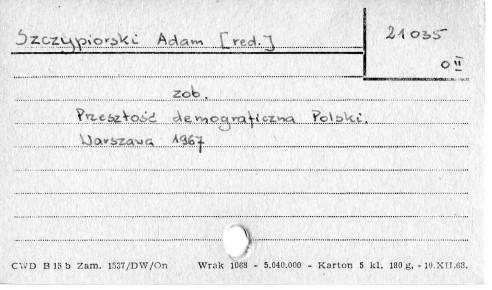 Szczypiorski Adam [red.]
21035
0 II
zob.
Przeszłość demograficzna Polski.
Warszawa 1967
CWD B 15 b Zam. 1537/DW/On Wrak 1068 - 5.040.000 - Karton 5 kl. 180 g, - 10.XII.68.